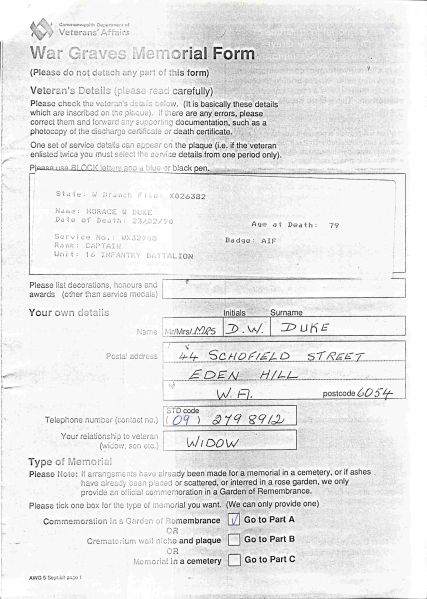 Commonwealth Department of
Veterans' Affairs
War Graves Memorial Form
(Please do not detach any part of this form)
Veteran's Details (please read carefully)
Please check the veteran's details below. (It is basically these details
which are inscribed on the plaque). If there are any errors, please
correct them and forward any supporting documentation, such as a
photocopy of the discharge certificate or death certificate.
One set of service details can appear on the plaque (i.e. if the veteran
enlisted twice you must select the service details from one period only).
Please use BLOCK letters and a blue or black pen.
State: W Branch File: X026382
Name: HORACE W DUKE
Date of Death: 23/02/90 Age at Death: 79
Service No.: Badge: AIF
Rank: CAPTAIN
Unit: 16 INFANTRY BATTALION
Please list decorations, honours and
awards (other than service medals)
Your own details
Initials Surname
Name Mr/Mrs/ MRS D.W. DUKE
Postal address 44 SCHOFIELD STREET
EDEN HILL
W.A. postcode 6054
STD code
Telephone number (contact no.) (09) 279 8912
Your relationship to veteran
(widow, son etc.) WIDOW
Type of Memorial
Please Note: If arrangements have already been made for a memorial in a cemetery, or if ashes
have already been placed or scattered, or interred in a rose garden, we only
provide an official commemoration in a Garden of Remembrance.
Please tick one box for the type of memorial you want. (We can only provide one)
Commemoration in a Garden of Remembrance ✓ Go to Part A
OR
Crematorium wall niche and plaque Go to Part B
OR
Memorial in a cemetery Go to Part C
page 1